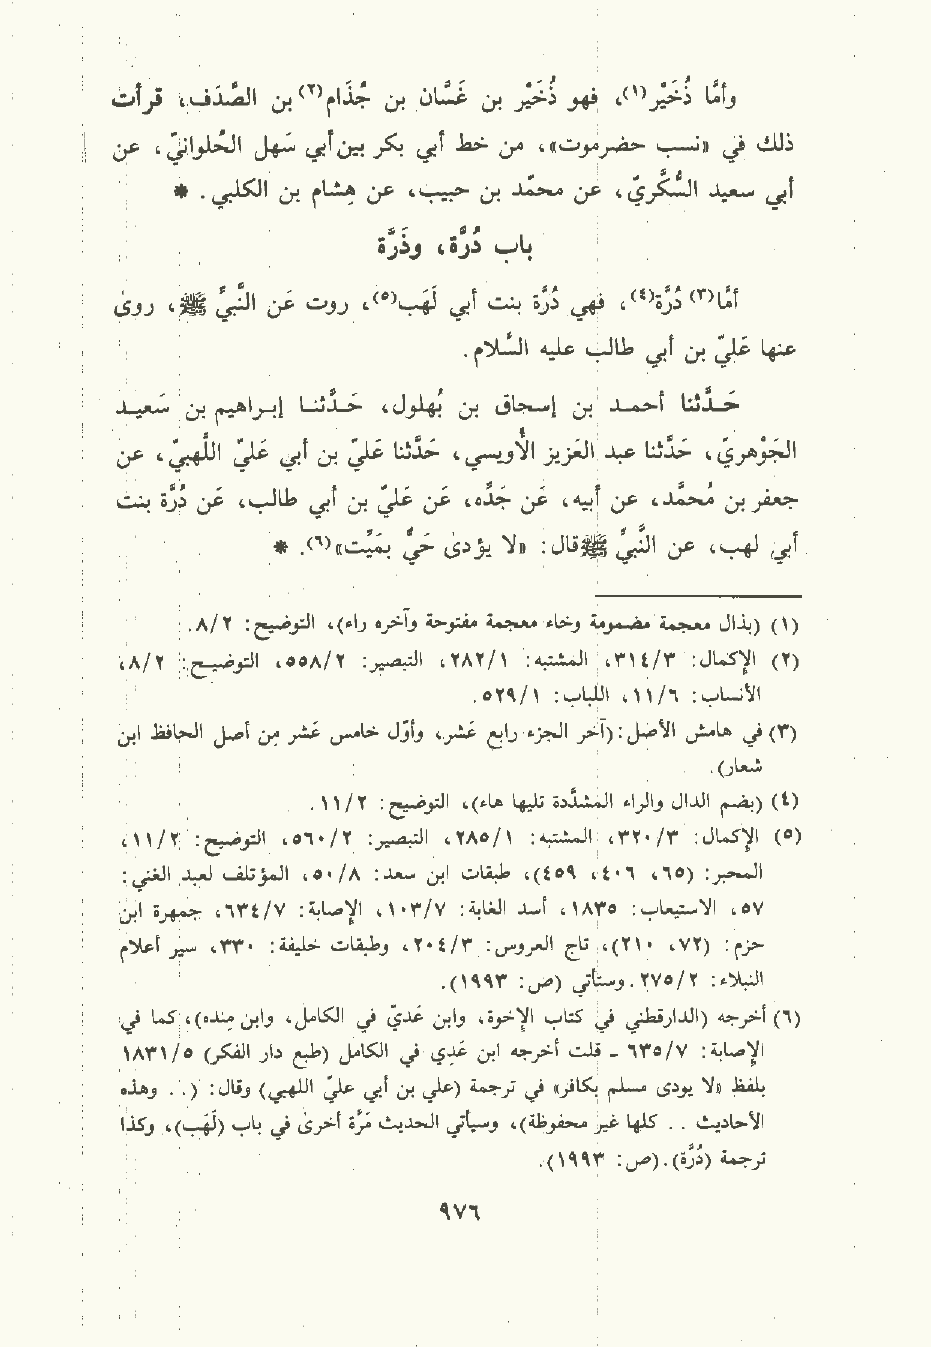 وأمَّا ذُخَيْر(١)، فهو ذُخَيْر بن غَسَّان بن جُذَام(٢) بن الصَّدَف، قرأت
ذلك في «نسب حضرموت»، من خط أبي بكر بن أبي سَهل الحُلوانيّ، عن
أبي سعيد السُّكَّريّ، عن محمّد بن حبيب، عن هِشام بن الكلبي. *
باب دُرَّة، وذَرَّة
أمَّا(٣) دُرَّة(٤)، فهي دُرَّة بنت أبي لَهَب(٥)، روت عَن النَّبيِّ ﷺ، روىٰ
عنها عَليّ بن أبي طالب عليه السَّلام.
حَـدَّثنا أحمـد بن إسحاق بن بُهلول، حَـدَّثنـا إبـراهيم بن سَعيـد
الجَوْهريّ، حَدَّثنا عبد العَزيز الأُويسيّ، حَدَّثنا عَليّ بن أبي عَليّ اللَّهبيّ، عن
جعفر بن مُحمَّد، عن أبيه، عَن جَدِّه، عَن عَليّ بن أبي طالب، عَن دُرَّة بنت
أبي لهب، عن النَّبيِّ ﷺ قال: «لا يؤدىٰ حَيٌّ بمَيِّت»(٦). *
(١) (بذال معجمة مضمومة وخاء معجمة مفتوحة وآخره راء)، التوضيح: ٨/٢.
(٢) الإكمال: ٣١٤/٣، المشتبه: ٢٨٢/١، التبصير: ٥٥٨/٢، التوضيـح: ٨/٢،
الأنساب: ١١/٦، اللباب: ٥٢٩/١.
(٣) في هامش الأصل: (آخر الجزء رابع عَشر، وأوّل خامس عَشر مِن أصل الحافظ ابن
شعار).
(٤) (بضم الدال والراء المشدّدة تليها هاء)، التوضيح: ١١/٢.
(٥) الإكمال: ٣٢٠/٣، المشتبه: ٢٨٥/١، التبصير: ٥٦٠/٢، التوضيح: ١١/٢،
المحبر: (٦٥، ٤٠٦، ٤٥٩)، طبقات ابن سعد: ٥٠/٨، المؤتلف لعبد الغني:
٥٧، الاستيعاب: ١٨٣٥، أسد الغابة: ١٠٣/٧، الإصابة: ٦٣٤/٧، جمهرة ابن
حزم: (٧٢، ٢١٠)، تاج العروس: ٢٠٤/٣، وطبقات خليفة: ٣٣٠، سير أعلام
النبلاء: ٢٧٥/٢. وستأتي (ص: ١٩٩٣).
(٦) أخرجه (الدارقطني في كتاب الإخوة، وابن عَديّ في الكامل، وابن مِنده)، كما في
الإصابة: ٦٣٥/٧ - قلت أخرجه ابن عَدِي في الكامل (طبع دار الفكر) ١٨٣١/٥
بلفظ «لا يودى مسلم بكافر» في ترجمة (علي بن أبي عليّ اللهبي) وقال: (.. وهذه
الأحاديث .. كلها غير محفوظة)، وسيأتي الحديث مَرَّة أخرىٰ في باب (لَهَب)، وكذا
ترجمة (دُرَّة). (ص: ١٩٩٣).
٩٧٦